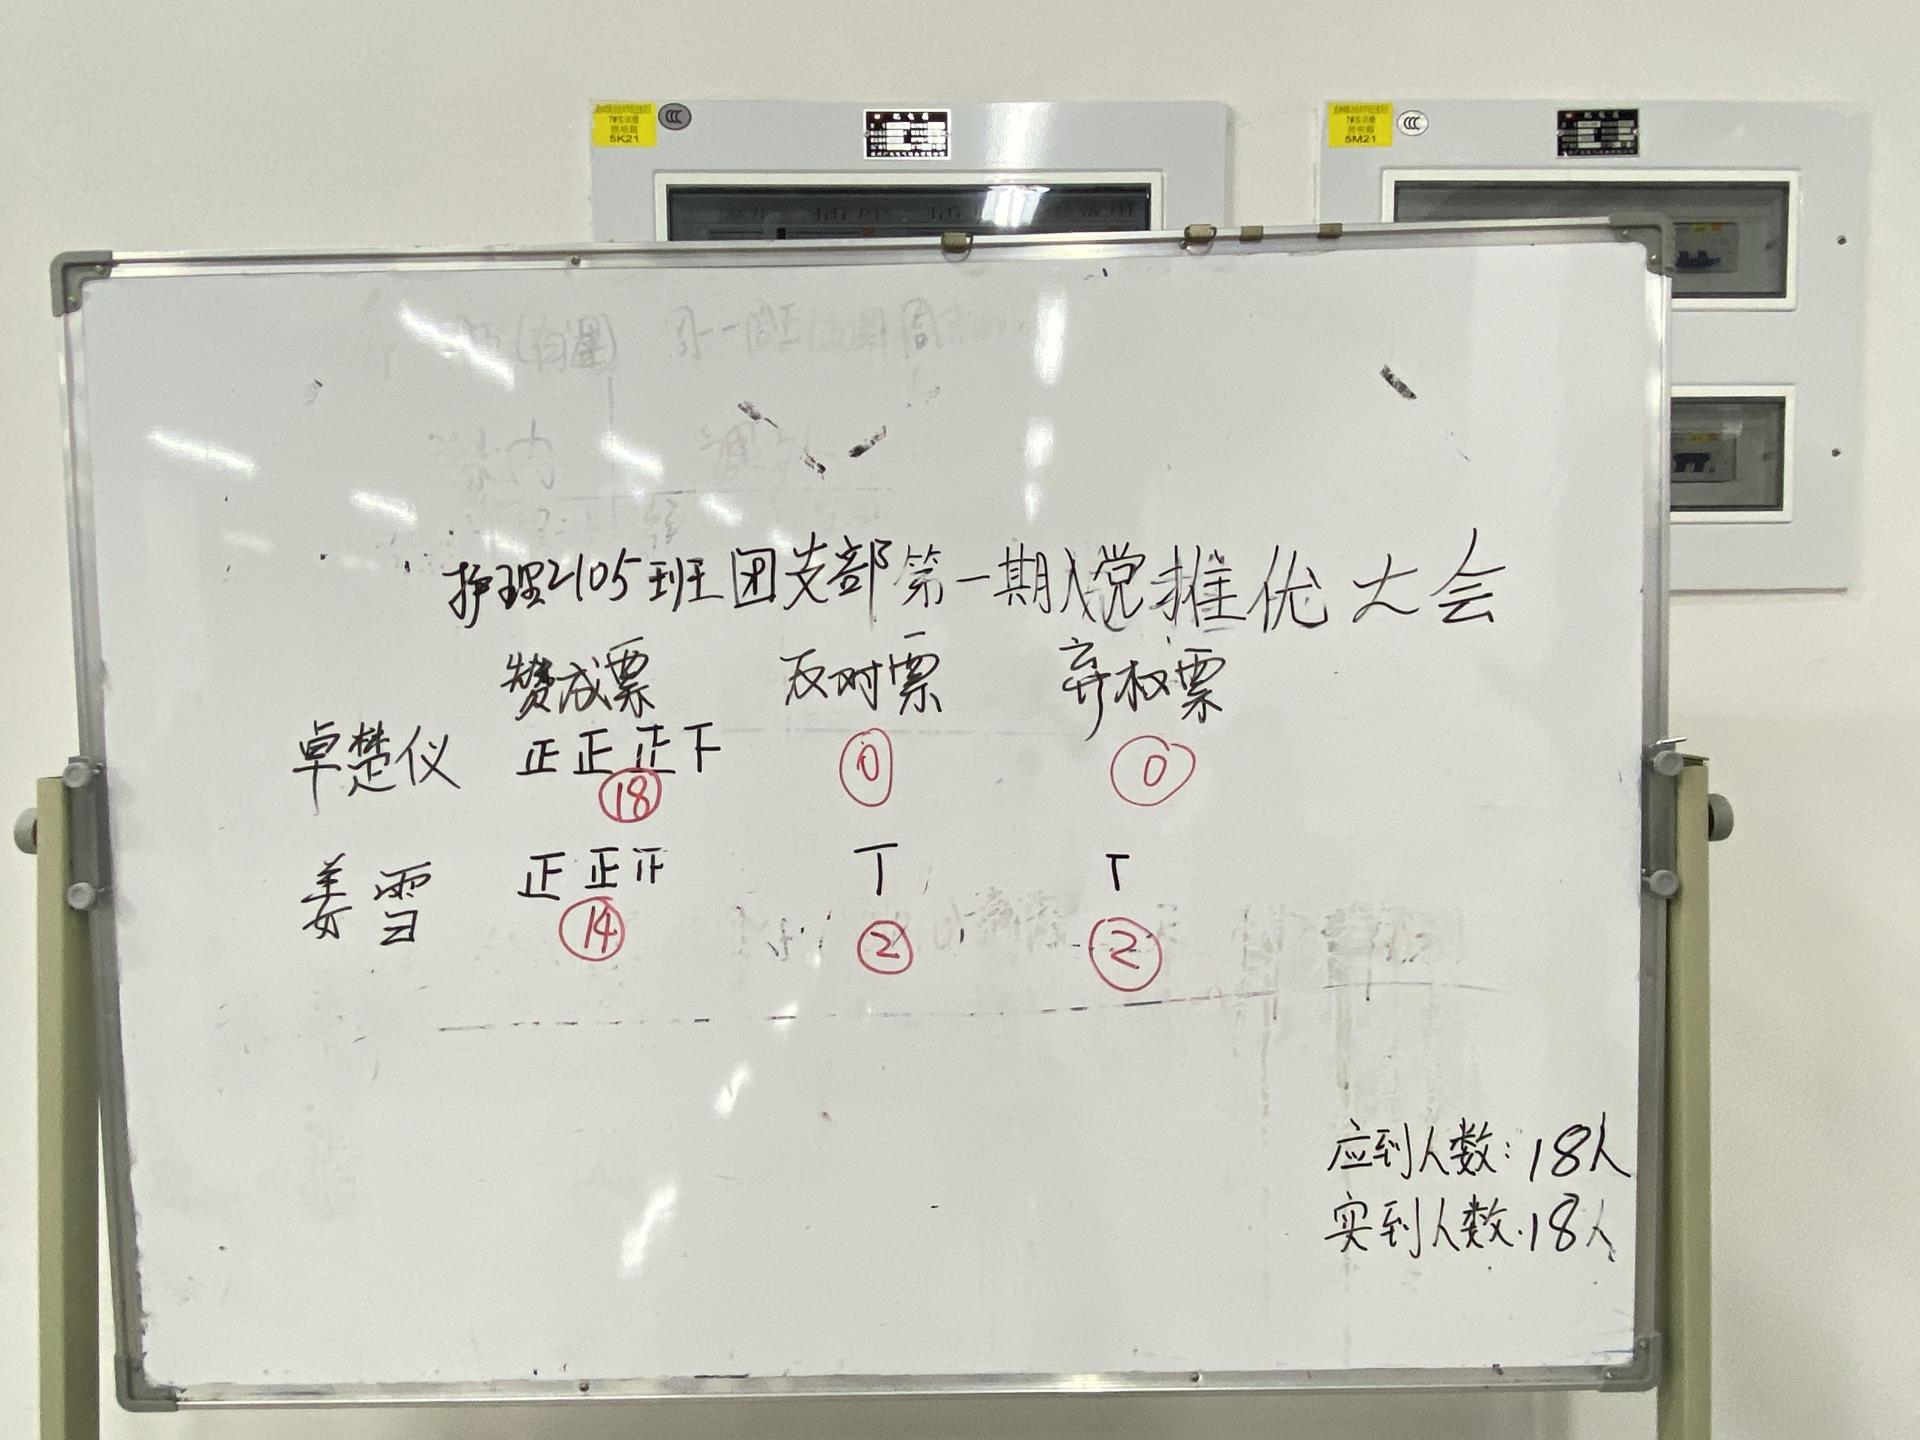 5K21
5M21
护理2105班团支部第一期入党推优大会
赞成票 反对票 弃权票
卓楚仪 正正正下 0 0
18
姜雪 正正正 丅 丅
14 2 2
应到人数:18人
实到人数:18人